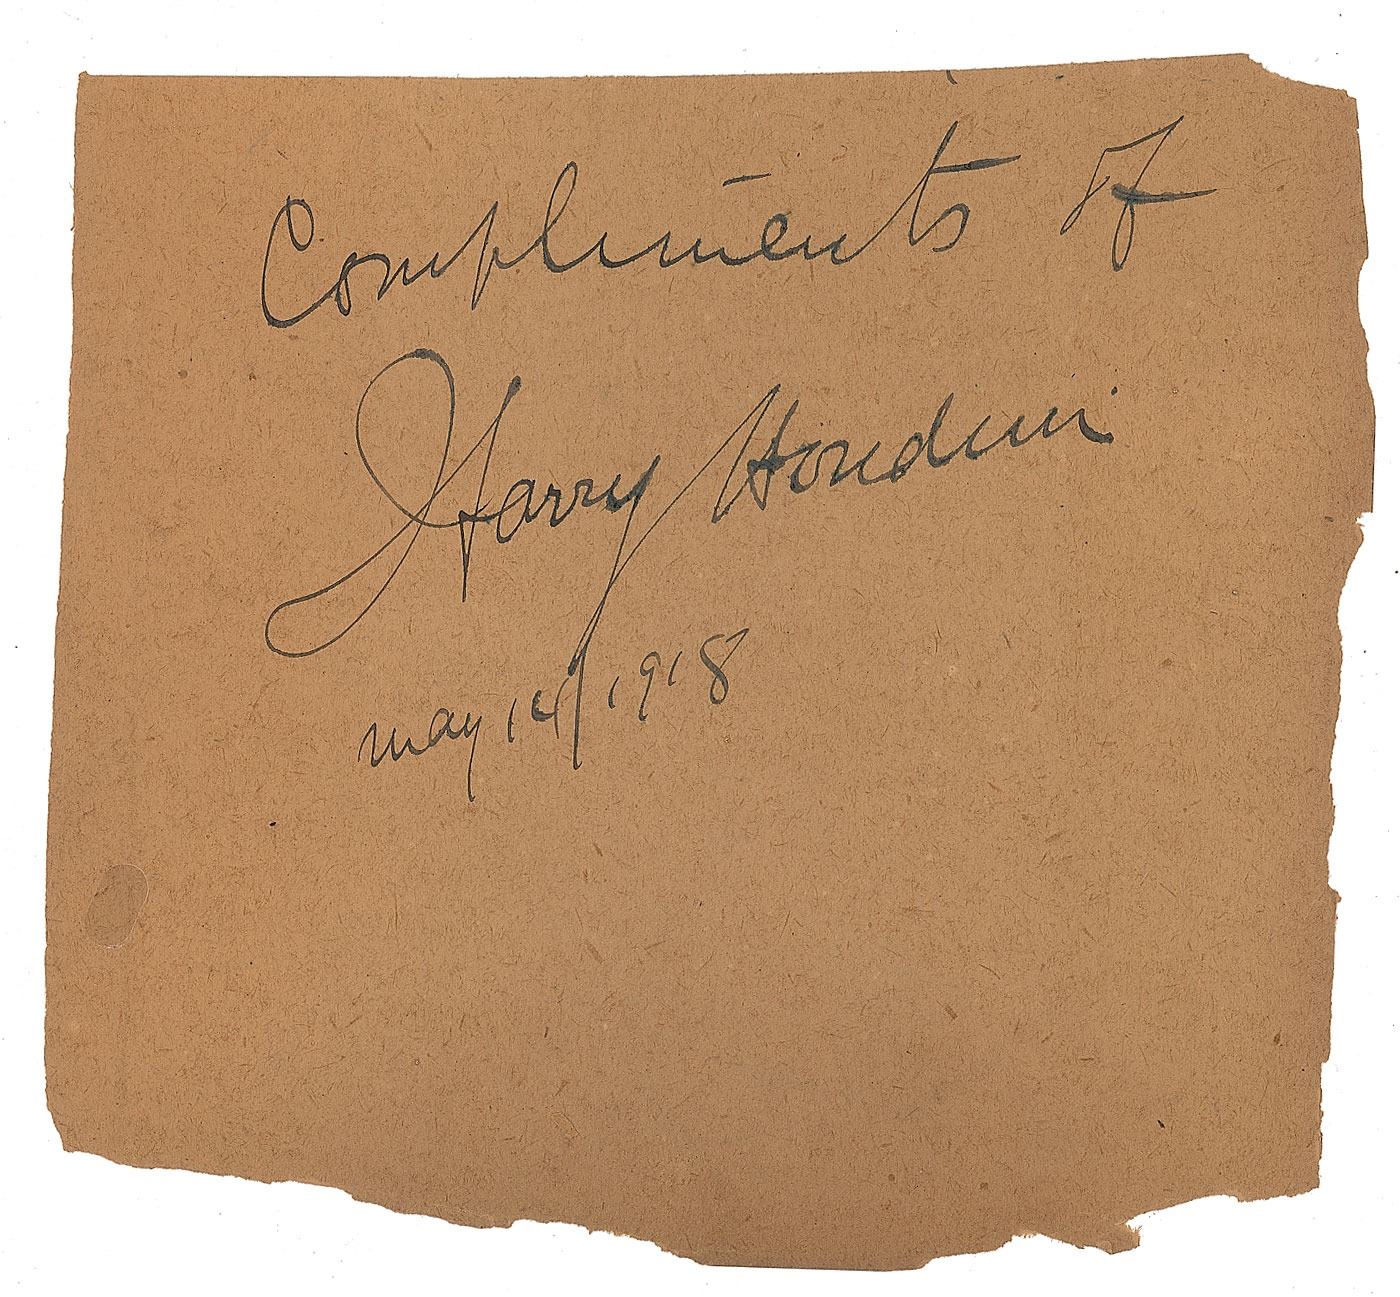 Compliments of
Harry Houdini
may 14/1918